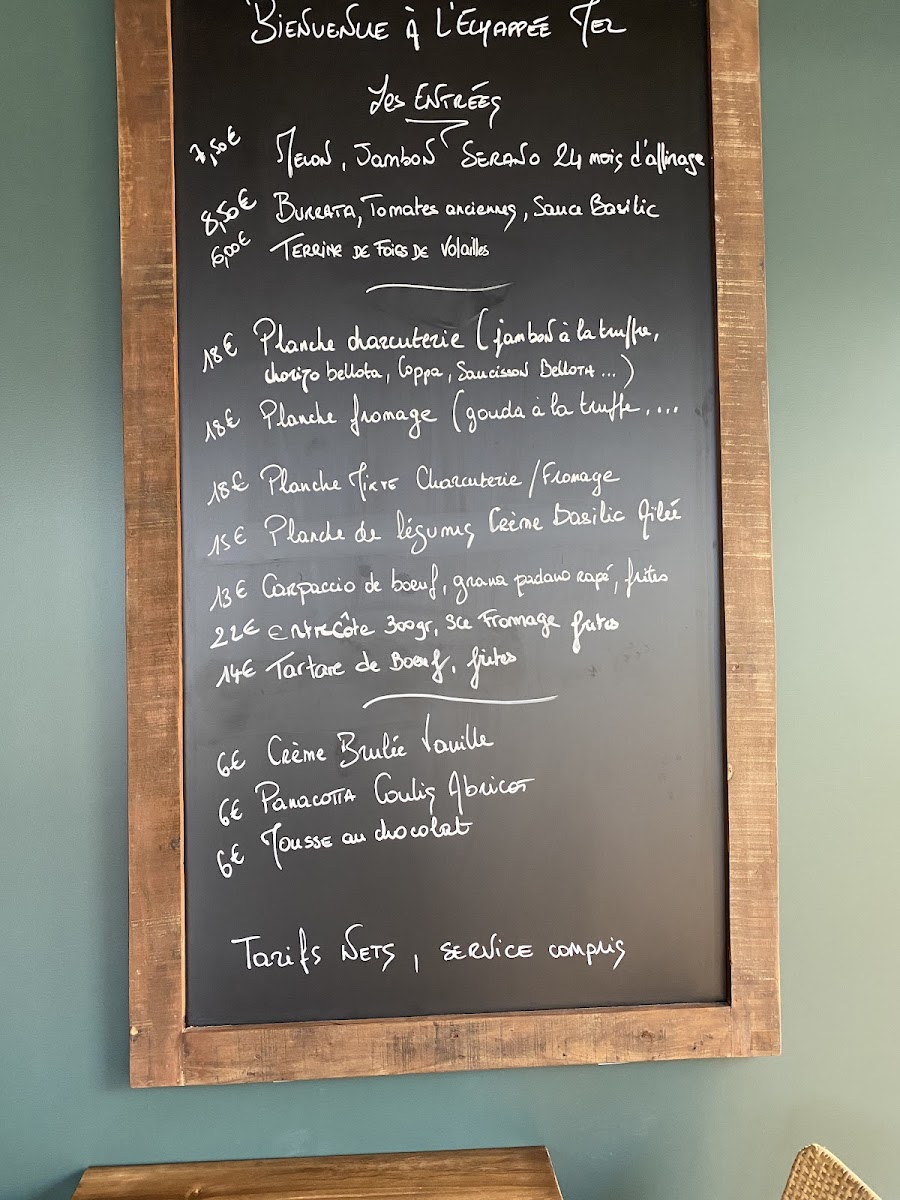 Bienvenue à l'Echappée Mer
Les Entrées
7,50€ Melon, Jambon Serano 24 mois d'affinage
8,50€ Burrata, Tomates anciennes, Sauce Basilic
6,00€ Terrine de Foies de Volailles
18€ Planche charcuterie (jambon à la truffe,
chorizo bellota, Coppa, Saucisson Bellota ...)
18€ Planche fromage (gouda à la truffe, ...
18€ Planche Mixte Charcuterie / Fromage
15€ Planche de légumes, Crème Basilic Ailée
13€ Carpaccio de boeuf, grana padano rapé, frites
22€ entrecôte 300gr, sce Fromage frites
14€ Tartare de Boeuf, frites
6€ Crème Brulée Vanille
6€ Panacotta Coulis Abricot
6€ Mousse au chocolat
Tarifs Nets, service compris